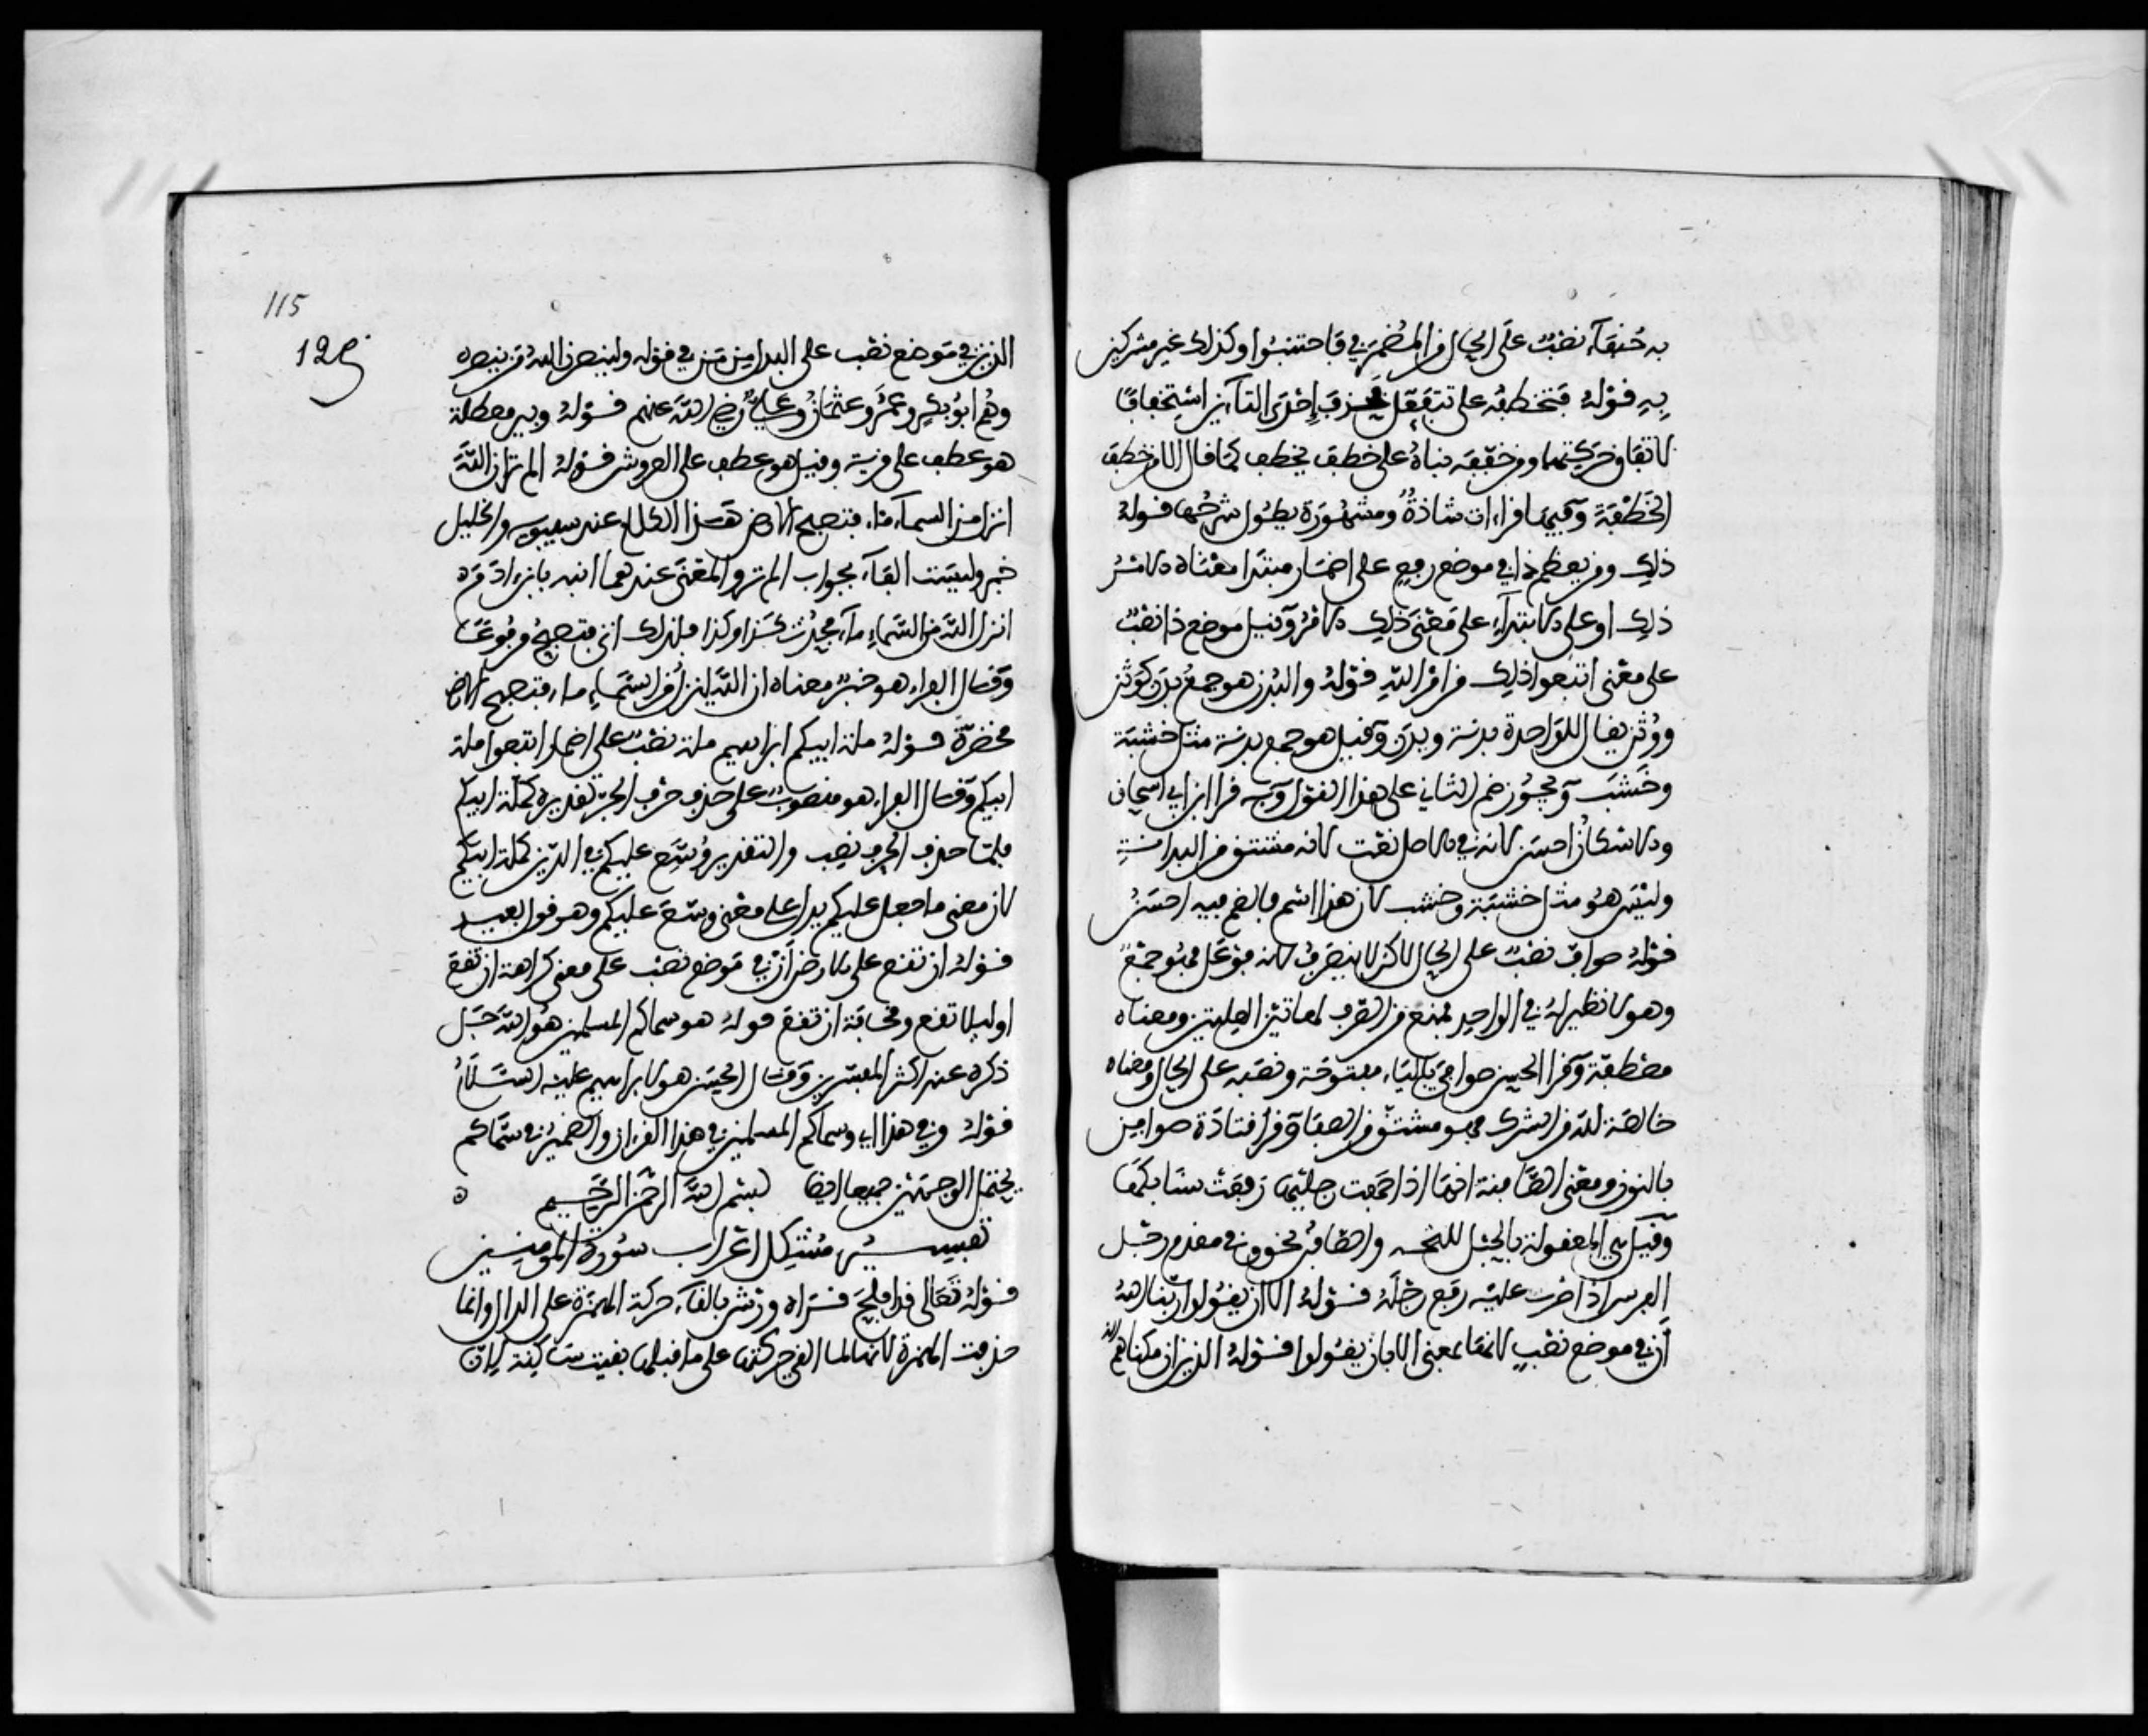 به حنفآء نصب على الحال من المضمر في فاجتنبوا وكذلك غير مشركين
به قوله فتخطفه على تتفعل فحذف إحدى التآءين استخفافا
لاتفاق حركتهما ومن خففه بناه على خطف يخطف كما قال الا من خطف
الخطفة وفيهما قراءات شاذة ومشهورة يطول شرحها قوله
ذلك ومن يعظم ذا في موضع رفع على اضمار مبتدا معناه الامر
ذلك او على الابتدآء على معنى ذلك الامر وقيل موضع ذا نصب
على معنى اتبعوا ذلك من امر الله قوله والبدن هو جمع بدن كوثن
ووثن يقال للواحدة بدنة وبدن وقيل هو جمع بدنة مثل خشبة
وخشب ويجوز ضم الثاني على هذا القول وبه قرا ابن ابي اسحاق
والاسكان احسن لانه في الاصل نعت لانه مشتق من البدانة
وليس هو مثل خشبة وخشب لان هذا اسم فالضم فيه احسن
قوله صواف نصب على الحال لاكن لا ينصرف لانه فواعل فهو جمع
وهو لا نظير له في الواحد فمنع من الصرف لهاتين العلتين ومعناه
مصطفة وقرا الحسن صوافي بالياء مفتوحة ونصبه على الحال ومعناه
خالصة لله من الشرك فهو مشتق من الصفا وقرا قتادة صوافن
بالنون ومعنى الصافنة انها اذا جمعت رجليها رفعت سنابكها
وقيل هي المعقولة بالحبل للنحر والصافن هو في مقدم رجل
الفرس اذا ضرب عليه رفع رجله قوله الا ان يقولوا ربنا الله
أن في موضع نصب لانها بمعنى الا بان يقولوا قوله الذين ان مكناهم
115
125
الذين في موضع نصب على البدل من من في قوله ولينصرن الله من ينصره
وهم ابو بكر وعمر وعثمان وعلي رضي الله عنهم قوله وبير معطلة
هو عطف على قرية وقيل هو عطف على العروش قوله الم تر ان الله
انزل من السمآء مآء فتصبح الارض هذا الكلام عند سيبويه والخليل
خبر وليست الفآء بجواب الم تر والمعنى عندهما انتبه يا بن ادم
انزل الله من السماء مآء فحدث كذا وكذا فلذلك اتى فتصبح مرفوعا
وقال الفراء هو خبر معناه ان الله ينزل من السمآء مآء فتصبح الارض
مخضرة قوله ملة ابيكم ابراهيم ملة نصب على اضمار اتبعوا ملة
ابيكم وقال الفراء هو منصوب على حذف حرف الجر تقديره كملة ابيكم
فلما حذف الحرف نصب والتقدير وسع عليكم في الدين كملة ابيكم
لان معنى ما جعل عليكم يدل على معنى وسع عليكم وهو قول بعيد
قوله ان تقع على الارض أن في موضع نصب على معنى كراهة ان تقع
او ليلا تقع ومخافة ان تقع قوله هو سماكم المسلمين هو لله جل
ذكره عند اكثر المفسرين وقال الحسن هو لابراهيم عليه السلام
قوله وفي هذا اي وسماكم المسلمين في هذا القرءان والضمير في سماكم
يحتمل الوجهين جميعا ايضا بسم الله الرحمن الرحيم
تفسير مشكل اعراب سورة المومنين
قوله تعالى قد افلح قراه ورش بالقآء حركة الهمزة على الدال وانما
حذفت الهمزة لانها لما القي حركتها على ما قبلها بقيت ساكنة لان